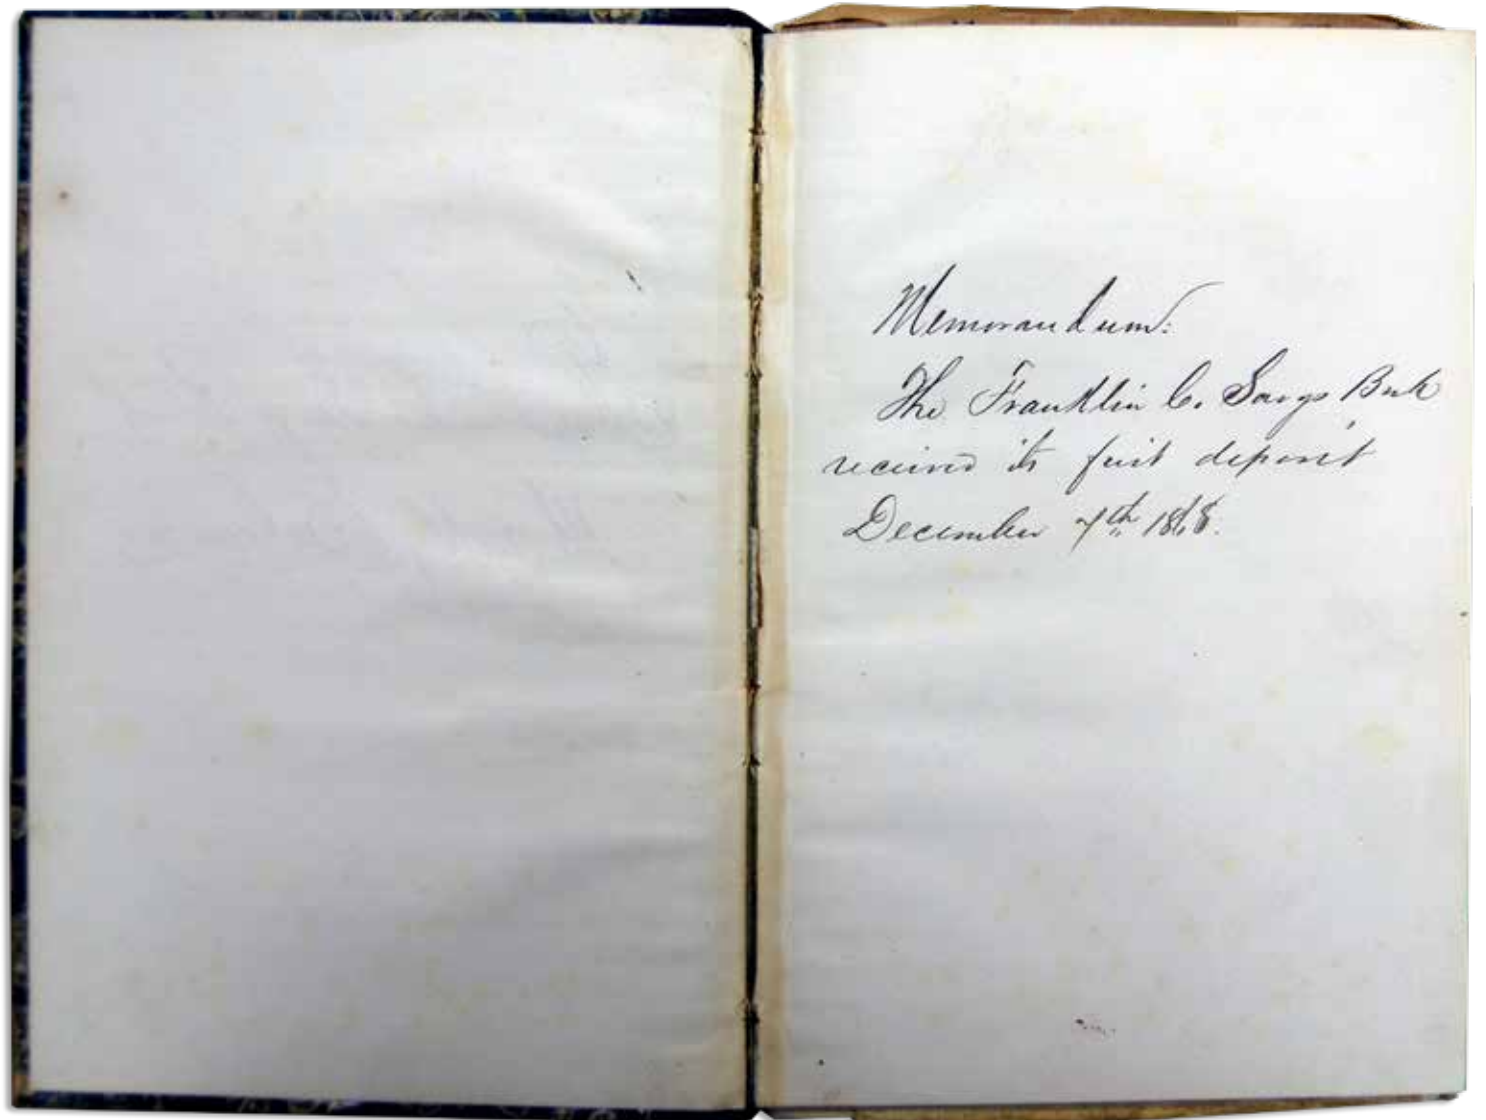 Memorandum:
The Franklin C. Savgs Bnk
received its first deposit
December 7th 1868.